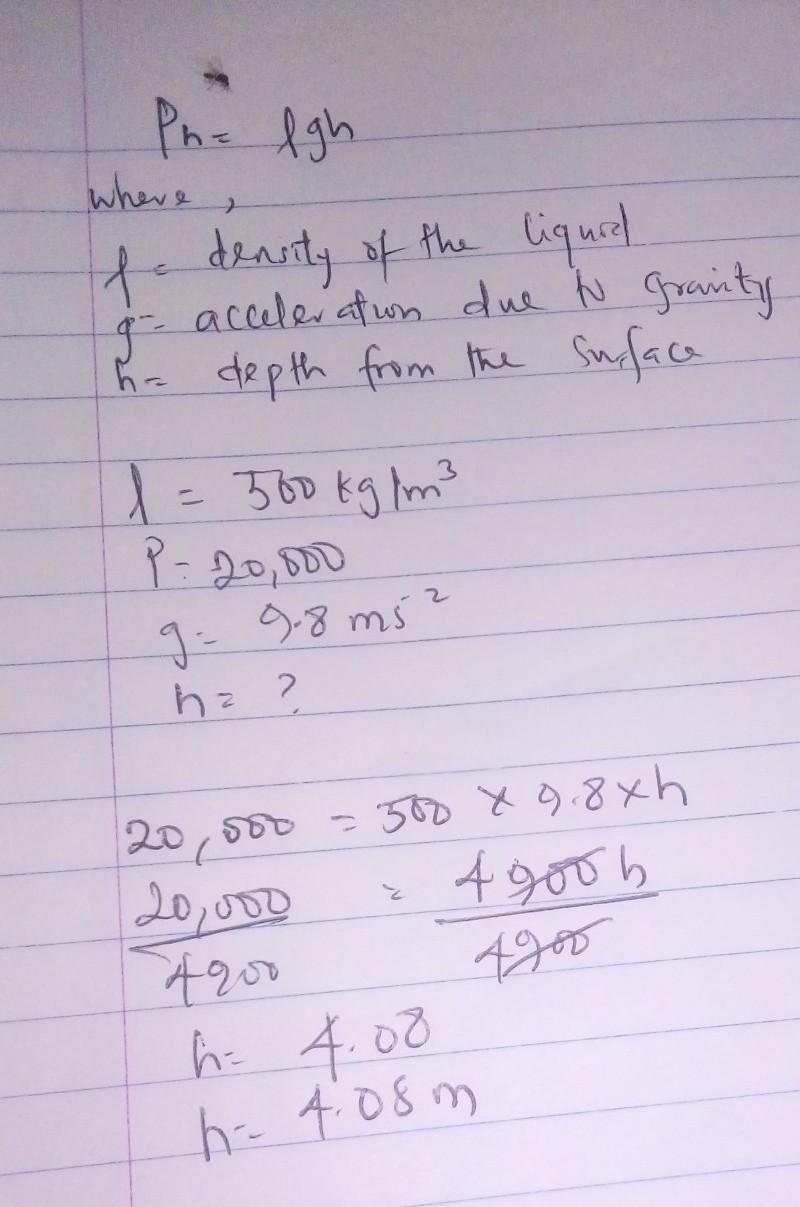 Ph = ρgh
where,
ρ = density of the liquid
g = acceleration due to gravity
h = depth from the surface
ρ = 500 kg/m³
P = 20,000
g = 9.8 ms⁻²
h = ?
20,000 = 500 × 9.8 × h
20,000 = 4900 h
4900 4900
h = 4.08
h = 4.08 m